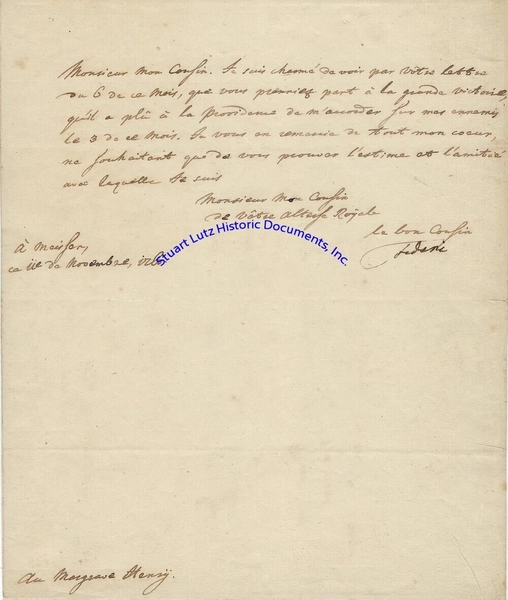 Monsieur Mon Cousin. Je suis charmé de voir par Vôtre lettre
du 6 de ce Mois, que vous prennièz part à la grande victoire,
qu'il a plû à la Providence de m'accorder sur mes ennemis
le 3 de ce Mois. Je vous en remercie de tout mon coeur,
ne souhaitant que de vous prouver l'estime et l'amitié
avec laquelle Je suis
Monsieur Mon Cousin
de Vôtre Altesse Royale
le bon Cousin
Federic
à Meissen,
ce 11e de Novembre,
Stuart Lutz Historic Documents, Inc.
Au Margrave Henry.